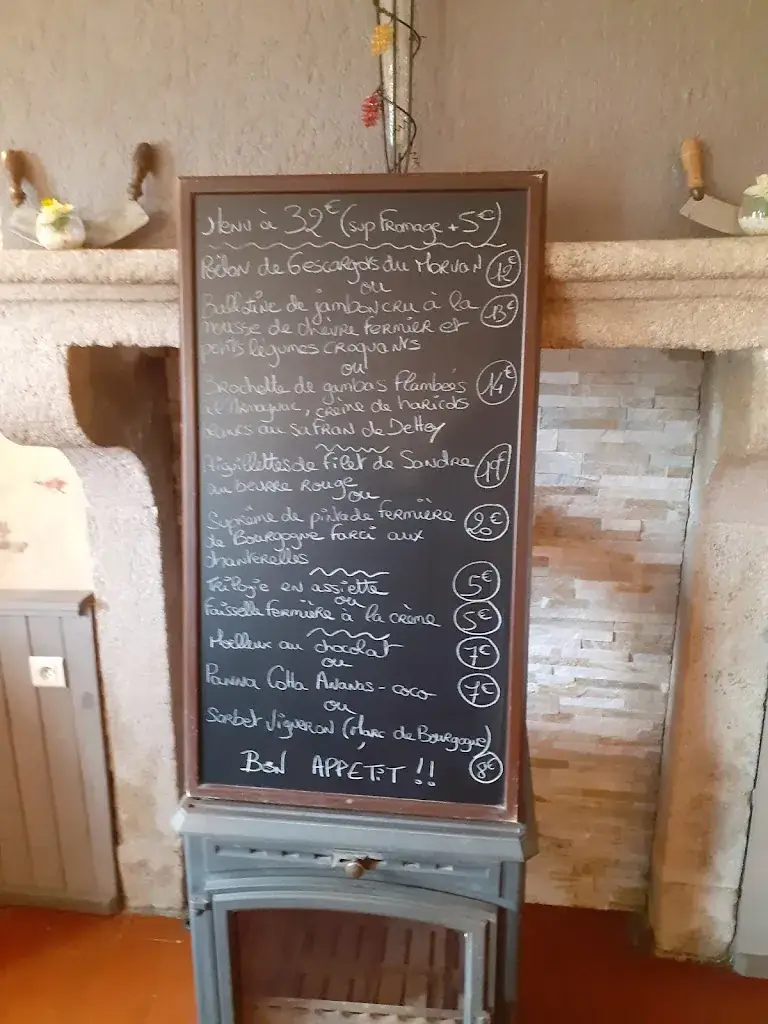 Menu à 32€ (sup Fromage +5€)
Poêlon de 6 escargots du Morvan 12€
ou
Ballotine de jambon cru à la 13€
mousse de chèvre fermier et
petits légumes croquants
ou
Brochette de gambas flambées 14€
à l'Armagnac, crème de haricots
blancs au safran de
Aiguillettes de filet de Sandre 19€
au beurre rouge
ou
Suprême de pintade fermière 20€
de Bourgogne farci aux
chanterelles
Trilogie en assiette 5€
ou
Faisselle fermière à la crème 5€
Moelleux au chocolat 7€
ou
Panna Cotta Ananas-coco 7€
ou
Sorbet Vigneron (Marc de Bourgogne)
BON APPETIT !! 8€